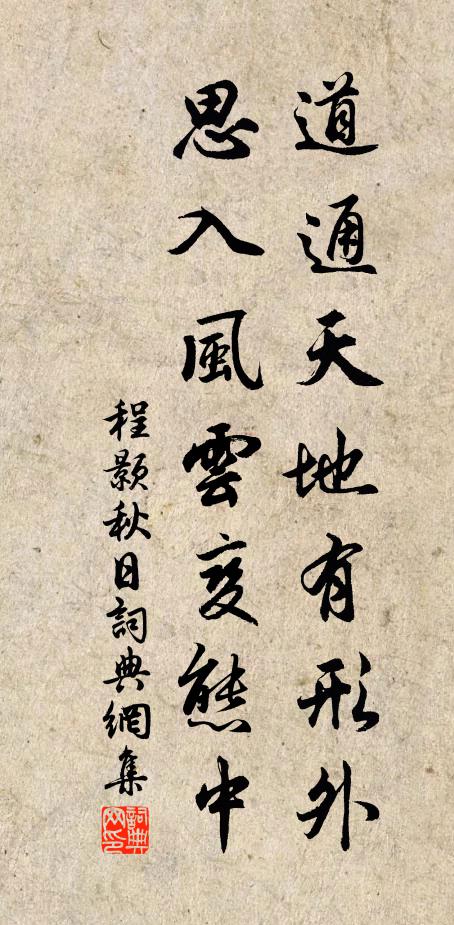 道通天地有形外
思入風雲變態中
程顥秋日詞典網集
詞典网印